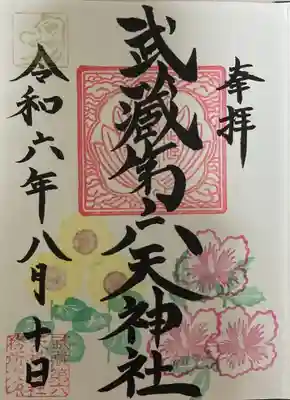 奉拝
武蔵第六天神社
令和六年八月十日